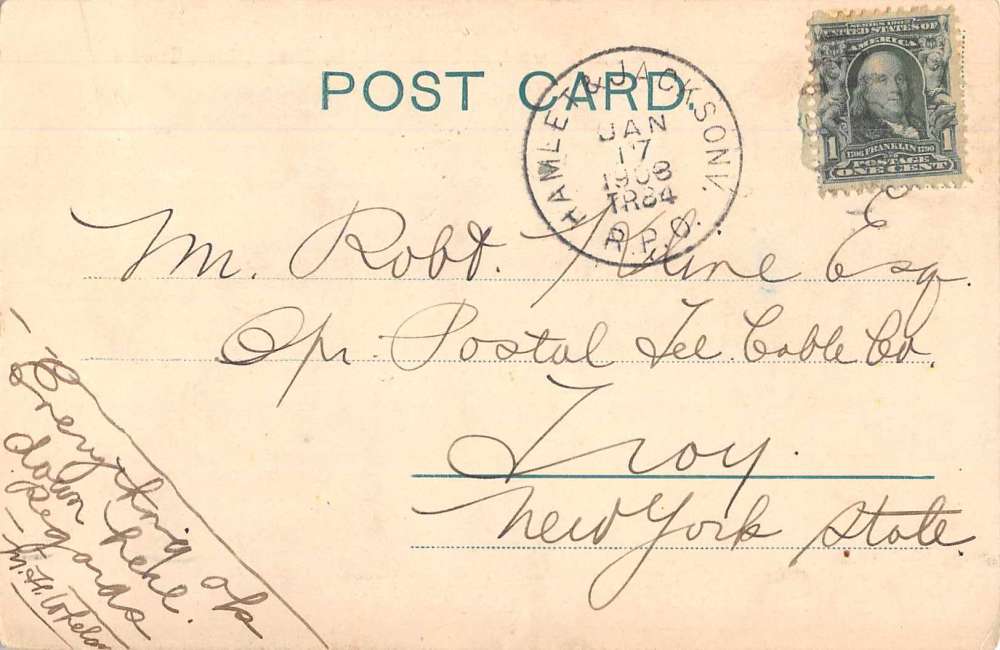 POST CARD.
HAMLET & JACKSONV.
JAN
17
1908
TR84
R.P.O.
SERIES 1902
UNITED STATES OF
AMERICA
1 1
1706 FRANKLIN 1790
POSTAGE
ONE CENT
Mr. Robt. Kline Esq.
Opr. Postal Tel. Cable Co.
Troy.
New York State.
Everything ok
down here.
Regards
M. H. Whelan